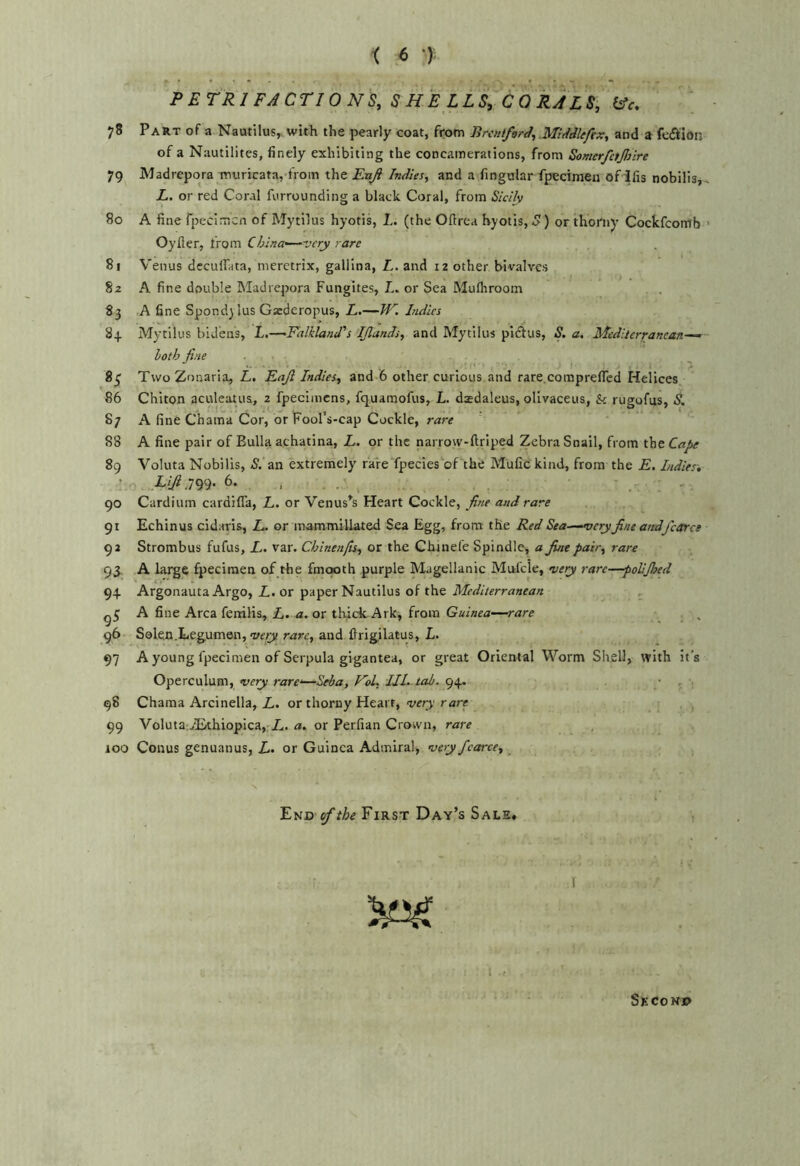 ( 6 )
PETRIFACTIONS, SHELLS, CORALS, &c.
78 PART of a Nautilus, with the pearly coat, from Brentford, Middlesex, and a ſection
of a Nautilites, finely exhibiting the concamerations, from Somerſetſhire
79 Madrepora muricata, from the Eaſt Indies, and a ſingular ſpecimen of Iſis nobilis,
L. or red Coral ſurrounding a black Coral, from Sicily
80 A fine ſpecimen of Mytilus hyotis, L. (the Oſtrea hyotis, S) or thorny Cockſcomb
Oyſter, from China—very rare
81 Venus decuſſata, meretrix, gallina, L. and 12 other bivalves
82 A fine double Madrepora Fungites, L. or Sea Muſhroom
83 A fine Spondylus Gædcropus, L.—W. Indies
84 Mytilus bidens, L.—Falkland's Iſlands, and Mytilus pictus, S. a. Mediterranean—
both fine
85 Two Zonaria, L. Eaſt Indies, and 6 other curious and rare compreſſed Helices
86 Chiton aculeatus, 2 ſpecimens, ſquamoſus, L. dædaleus, olivaceus, & rugoſus, S.
87 A fine Chama Cor, or Fool's-cap Cockle, rare
88 A fine pair of Bulla achatina, L. or the narrow-ſtriped Zebra Snail, from the Cape
89 Voluta Nobilis, S. an extremely rare ſpecies of the Muſic kind, from the E. Indies.
Liſt 799. 6.
90 Cardium cardiſſa, L. or Venus's Heart Cockle, fine and rare
91 Echinus cidaris, L. or mammillated Sea Egg, from the Red Sea—very fine and ſcarce
92 Strombus fuſus, L. var. Chinenſis, or the Chineſe Spindle, a fine pair, rare
93 A large ſpecimen of the ſmooth purple Magellanic Muſcle, very rare—poliſhed
94 Argonauta Argo, L. or paper Nautilus of the Mediterranean
95 A fine Arca ſenilis, L. a. or thick Ark, from Guinea—rare
96 Solen Legumen, very rare, and ſtrigilatus, L.
97 A young ſpecimen of Serpula gigantea, or great Oriental Worm Shell, with it's
Operculum, very rare—Seba, Vol. III. tab. 94.
98 Chama Arcinella, L. or thorny Heart, very rare
99 Voluta Æthiopica, L. a. or Perſian Crown, rare
100 Conus genuanus, L. or Guinea Admiral, very ſcarce,
END of the FIRST DAY's SALE.
SECOND